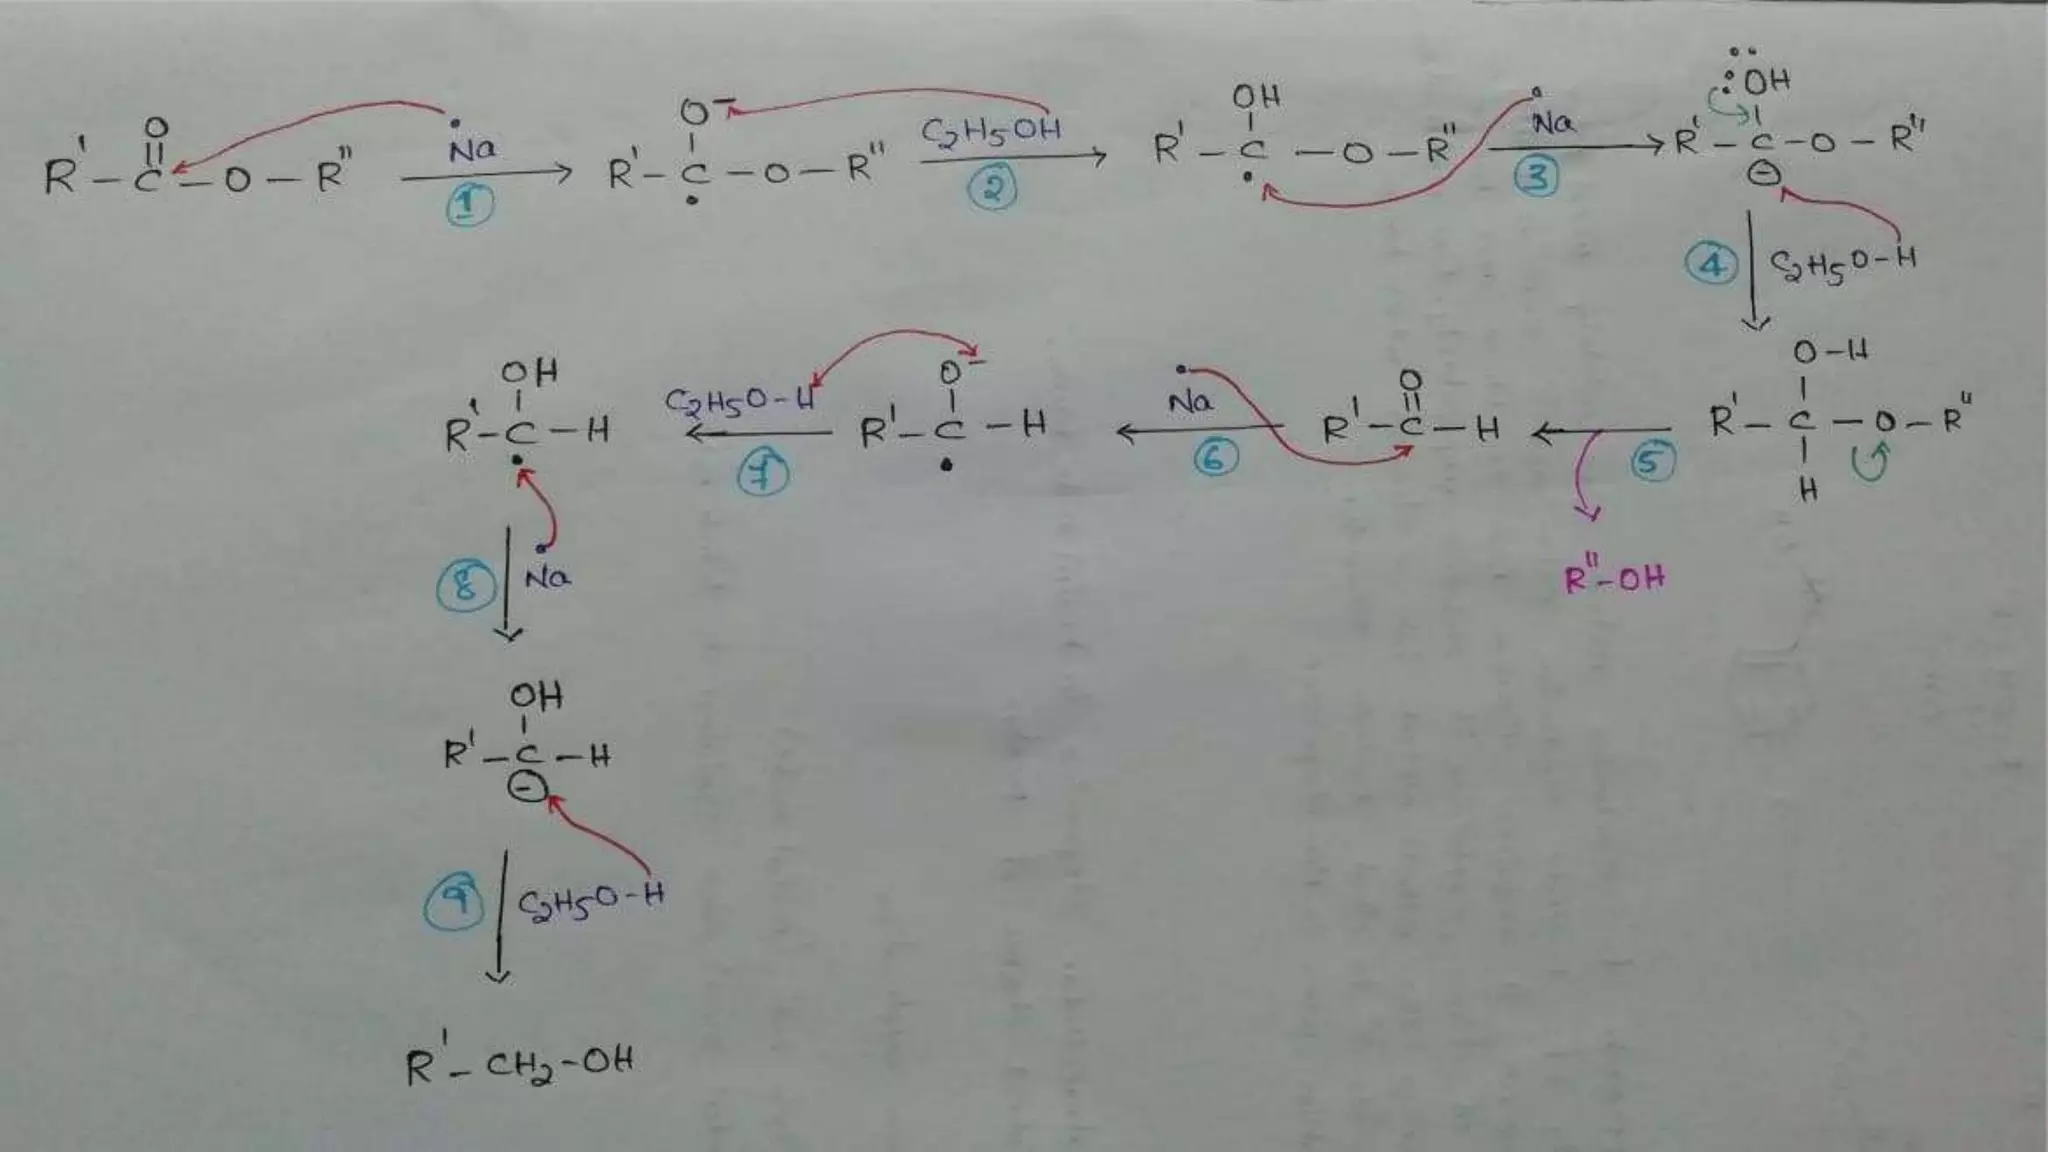 R' – C(=O) – O – R" •Na → ① R' – C(O⁻)(•) – O – R" C2H5OH → ② R' – C(OH)(•) – O – R" •Na → ③ R' – C(OH)(⊖) – O – R"
④ C2H5O–H
R' – C(O–H)(H) – O – R" ← ⑤ R' – C(=O) – H ← Na ⑥ R' – C(O⁻)(•) – H ← C2H5O–H ⑦ R' – C(OH)(•) – H
R"–OH
⑧ Na
R' – C(OH)(⊖) – H
⑨ C2H5O–H
R' – CH2–OH